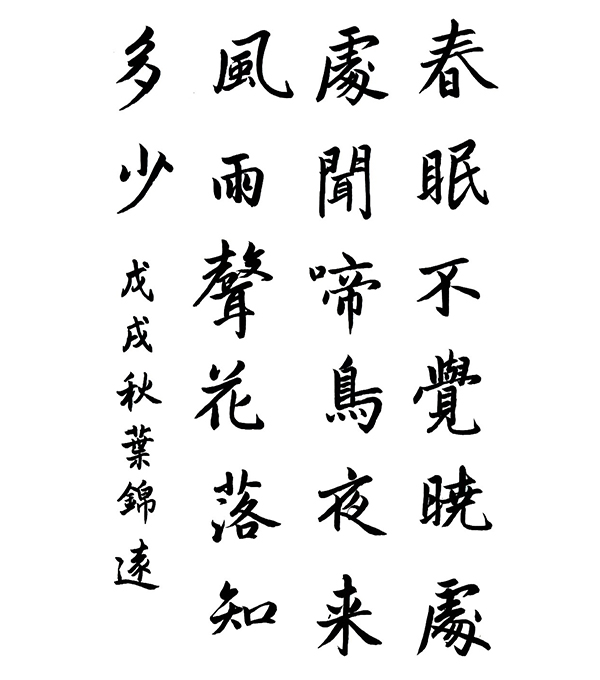 春眠不覺曉處
處聞啼鳥夜来
風雨聲花落知
多少 戊戌秋葉錦遠